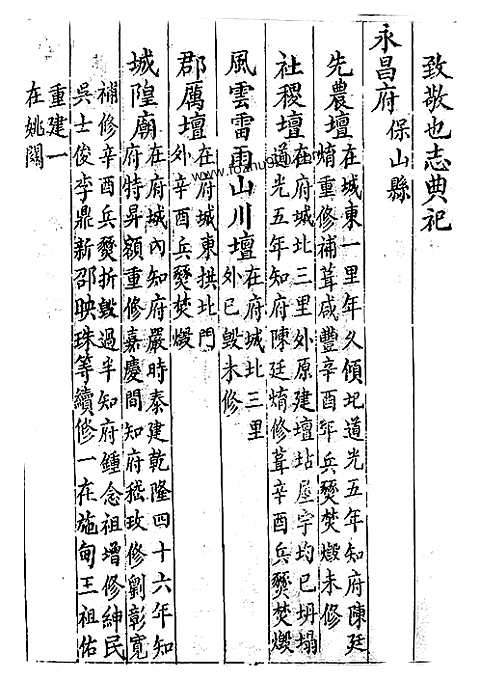 致敬也志典祀
永昌府 保山縣
先農壇 在城東一里年久傾圮道光五年知府陳廷
焴重修補葺咸豐辛酉年兵燹焚燬未修
社稷壇 在府城北三里外原建壇坫屋宇均已坍塌
道光五年知府陳廷焴修葺辛酉兵燹焚燬
風雲雷雨山川壇 在府城北三里
外已毀未修
郡厲壇 在府城東拱北門
外辛酉兵燹焚燬
城隍廟 在府城內知府嚴時泰建乾隆四十六年知
府特昇額重修嘉慶間知府嵇玫修劉彰寬
補修辛酉兵燹折毀過半知府鍾念祖增修紳民
吳士俊李鼎新邵映珠等續修一在施甸王祖佑
重建一
在姚關